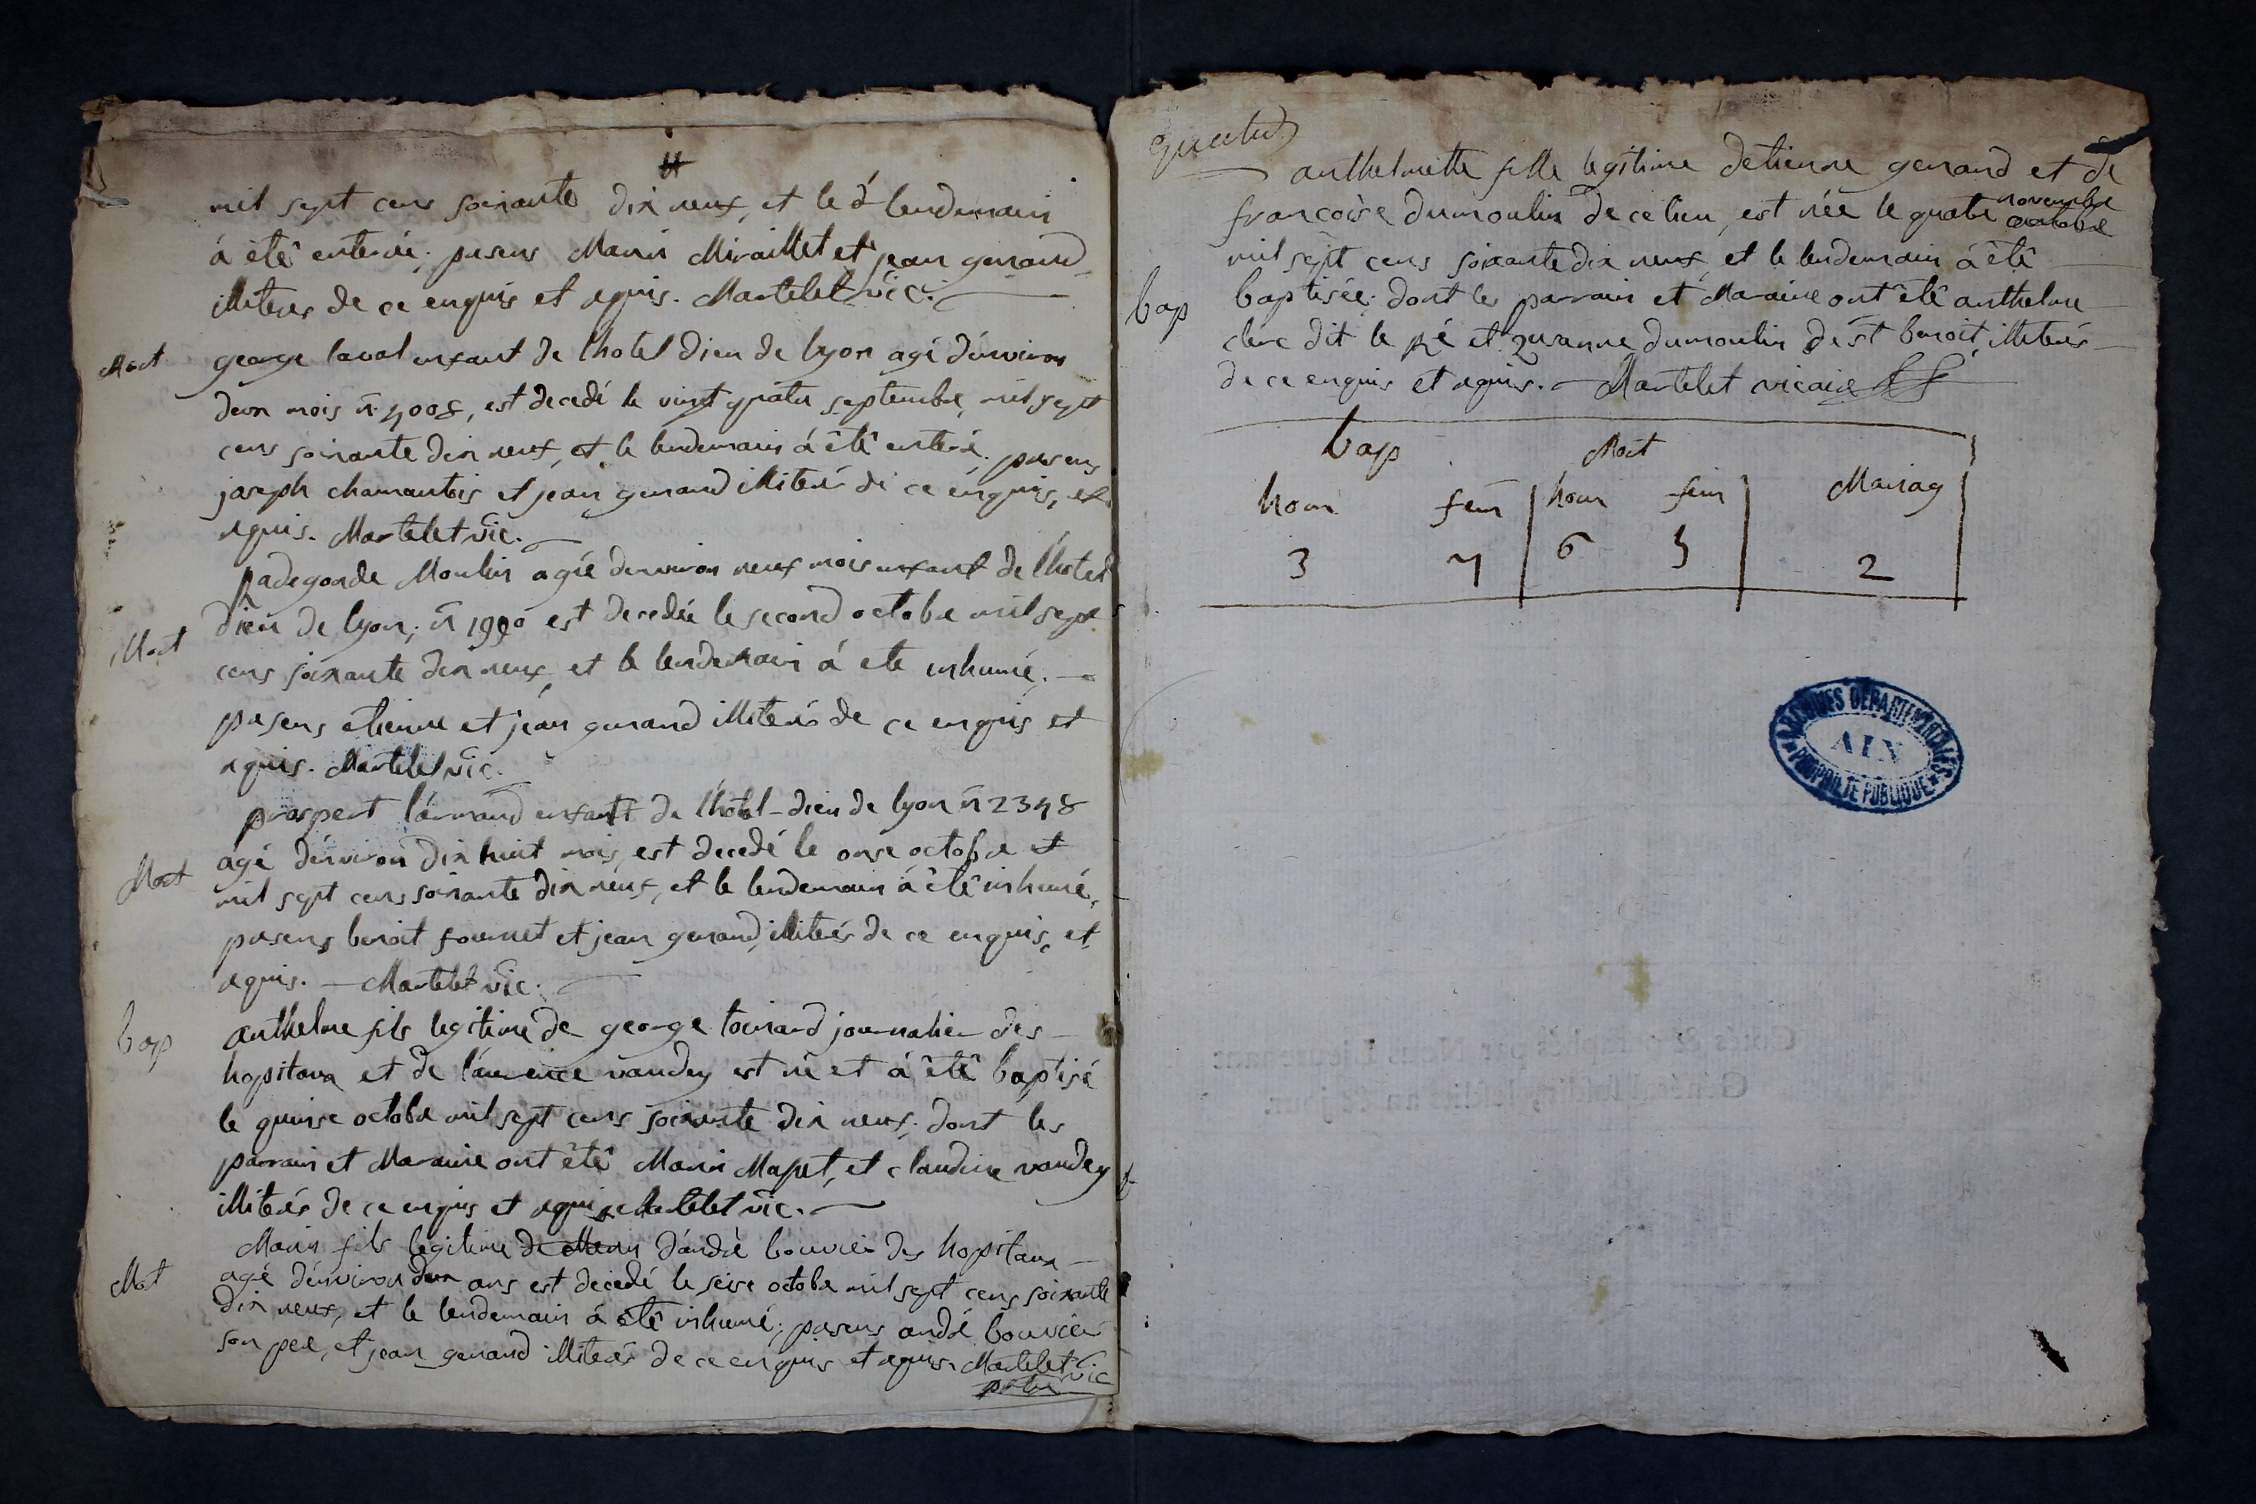 mil sept cens soixante dix neuf, et le d lendemain
á êtê enterée; presens Marin Miraillet et jean genand
illiteres de ce enquis et requis. Martelet vic.
Mort
george laval enfant de l'hotel dieu de lyon agé d'environ
deux mois n. 4008, est decedé le vingt quatre septembre, mil sept
cens soixante dix neuf, et le lendemain á êtê enteré. presens
joseph chamantois et jean genand illiterés de ce enquis, et
requis. Martelet vic.
Mort
Radegonde Moulin agée denviron neuf mois enfant de l'hotel
dieu de lyon, n 1990 est decedée le second octobre mil sept
cens soixante dix neuf, et le lendemain á ete inhumé.
presens etienne et jean genand illiterés de ce enquis et
requis. Martelet vic.
Mort
prospert l'armand enfant de l'hotel-dieu de lyon n 2348
agé d'environ dix huit mois, est decedé le onse octobre et
mil sept cens soixante dix neuf, et le lendemain á êtê inhumé,
presens benoit fournet et jean genand, illiterés de ce enquis, et
requis. Martelet vic.
bap
anthelme fils legitime de george toinard journalier des
hopitaux et de laurence vandey est né et á êtê baptisé
le quinse octobre mil sept cens soixante dix neuf; dont les
parrain et Maraine ont êtê Marin Mapet, et claudine vandey
illiterés de ce enquis et requis Martelet vic.
Mort
Marin fils legitime de Marin d'andré bouvier des hopitaux
agé d'environ deux ans est decedé le seise octobre mil sept cens soixante
dix neuf, et le lendemain á êtê inhumé; presens andré bouvier
son pere, et jean genand illiterés de ce enquis et requis. Martelet vic
anthelmette fille legitime detienne genand et de
francoise dumoulin de ce lieu, est née le quatre novembre
octobre
mil sept cens soixante dix neuf, et le lendemain á êtê
bap
baptisée; dont les parrain et Maraine ont êtê anthelme
clerc dit le Ré et Suzanne dumoulin de st benoit, illiterés
de ce enquis et requis. Martelet vicaire
bap Mort
hom fem hom fem Mariag
3 4 6 5 2
ARCHIVES DEPARTEMENTALES
AIN
PROPRIETE PUBLIQUE